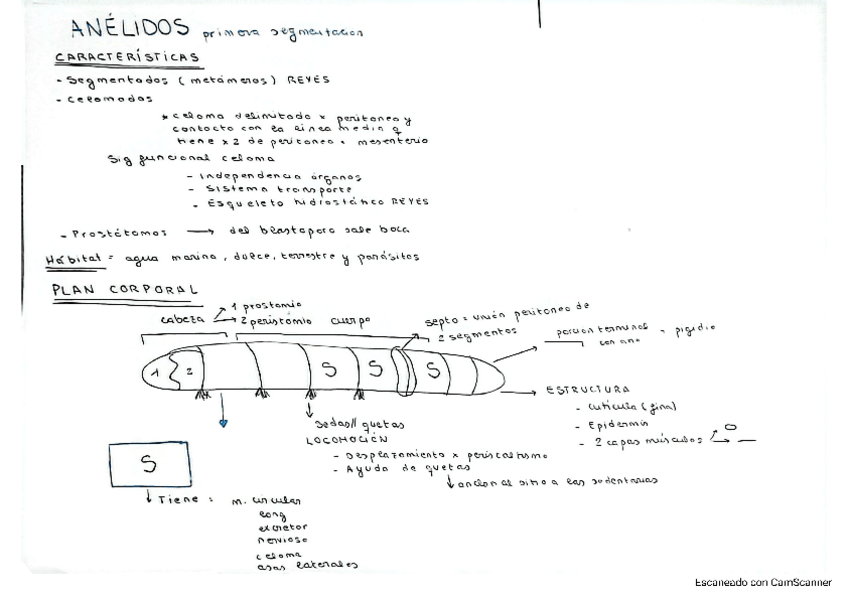 ANÉLIDOS primera segmentacion
CARACTERÍSTICAS
- Segmentados (metámeros) REYES
- Celomados
* celoma delimitado x peritoneo y
contacto con la linea media q
tiene x2 de peritoneo = mesenterio
Sig funcional celoma
- Independencia órganos
- Sistema transporte
- Esqueleto hidrostático REYES
- Prostótomos → del blastoporo sale boca
Hábitat = agua marina, dulce, terrestre y parásitos
PLAN CORPORAL
cabeza
1 prostomio
2 peristómio
cuerpo
septo = unión peritoneo de
2 segmentos
porcion terminal
con ano
= pigidio
1 2 S S S
ESTRUCTURA
- cutícula (fina)
- Epidermis
- 2 capas músculos
sedas // quetas
LOCOMOCIÓN
- Desplazamiento x peristaltismo
- Ayuda de quetas
anclan al sitio a las sedentarias
S
Tiene : m. circular
long
excretor
nervioso
celoma
asas laterales
Escaneado con CamScanner